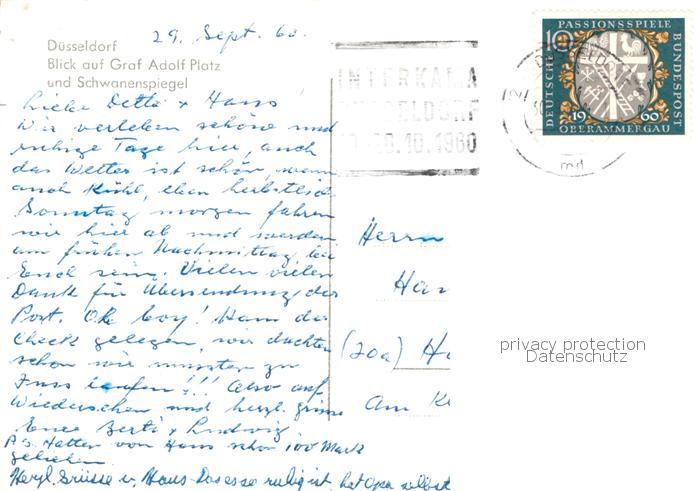 29. Sept. 60.
Düsseldorf
Blick auf Graf Adolf Platz
und Schwanenspiegel
Liebe Detta + Hans!
Wir verleben schöne und
ruhige Tage hier, auch
das Wetter ist schön, wenn
auch kühl, eben herbstlich.
Sonntag morgen fahren
wir hier ab und werden
am frühen Nachmittag bei
Euch sein. Vielen vielen
Dank für Übersendung der
Post. Oh boy! Kam der
Check gelegen, wir dachten
schon wir mussten zu
Fuss laufen!!! Also auf
Wiedersehen und herzl. grüsse
Eure Berti + Ludwig
P.S. Hatten von Hans schon 100 Mark
geliehen.
Herzl. Grüsse v. Haus ruhig ist, hat Opa selbst
INTERKAMA
DÜSSELDORF
10.1960
DEUTSCHE BUNDESPOST
PASSIONSSPIELE
10
1960
OBERAMMERGAU
Herrn
Han
(20a) H
Am K
privacy protection
Datenschutz